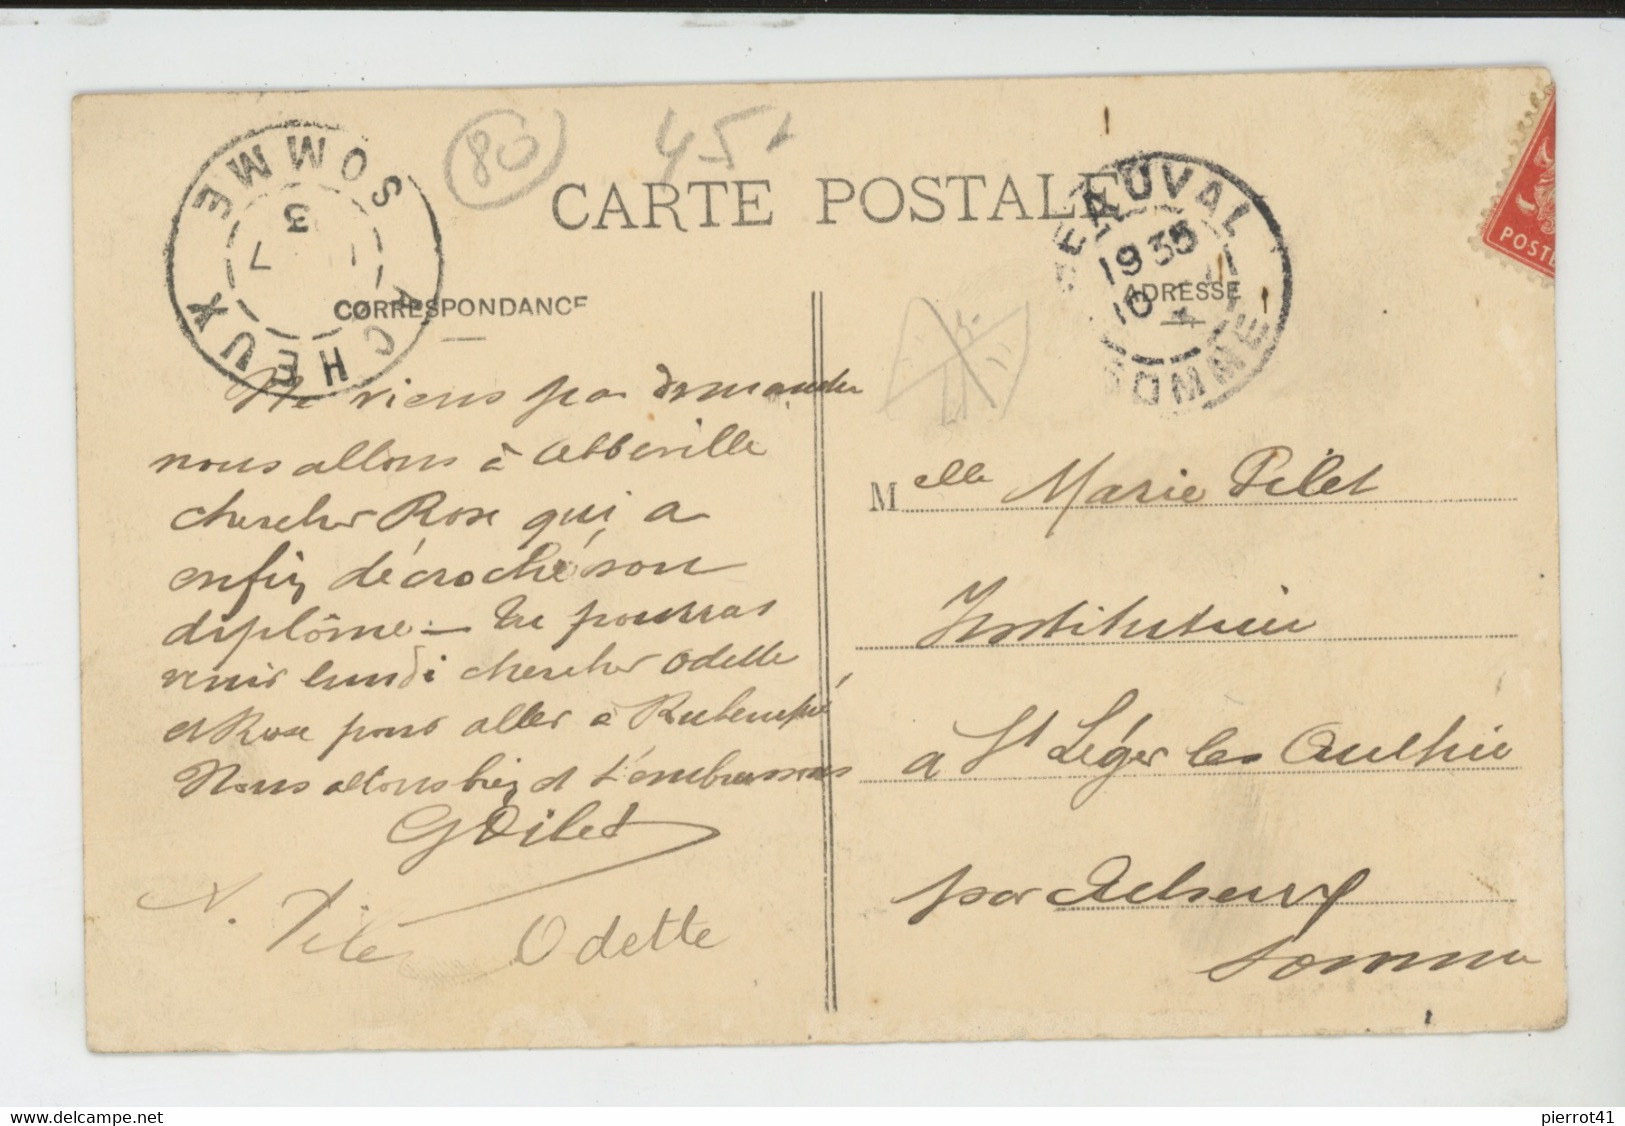 80
45
CARTE POSTALE
SOMME
3
7
ACHEUX
BEAUVAL
1935
10
SOMME
POSTE
CORRESPONDANCE
ADRESSE
Ne viens pas demander
nous allons à Abbeville
chercher Rose qui a
enfin décroché son
diplôme. — Tu pourras
venir lundi chercher Odette
et Rose pour aller à Rubempré
Nous allons bien et t'embrassons
GPilet
N. Tité Odette
Melle Marie Pilet
Institutrice
à St Léger les Authie
par Acheux
Somme
pierrot41